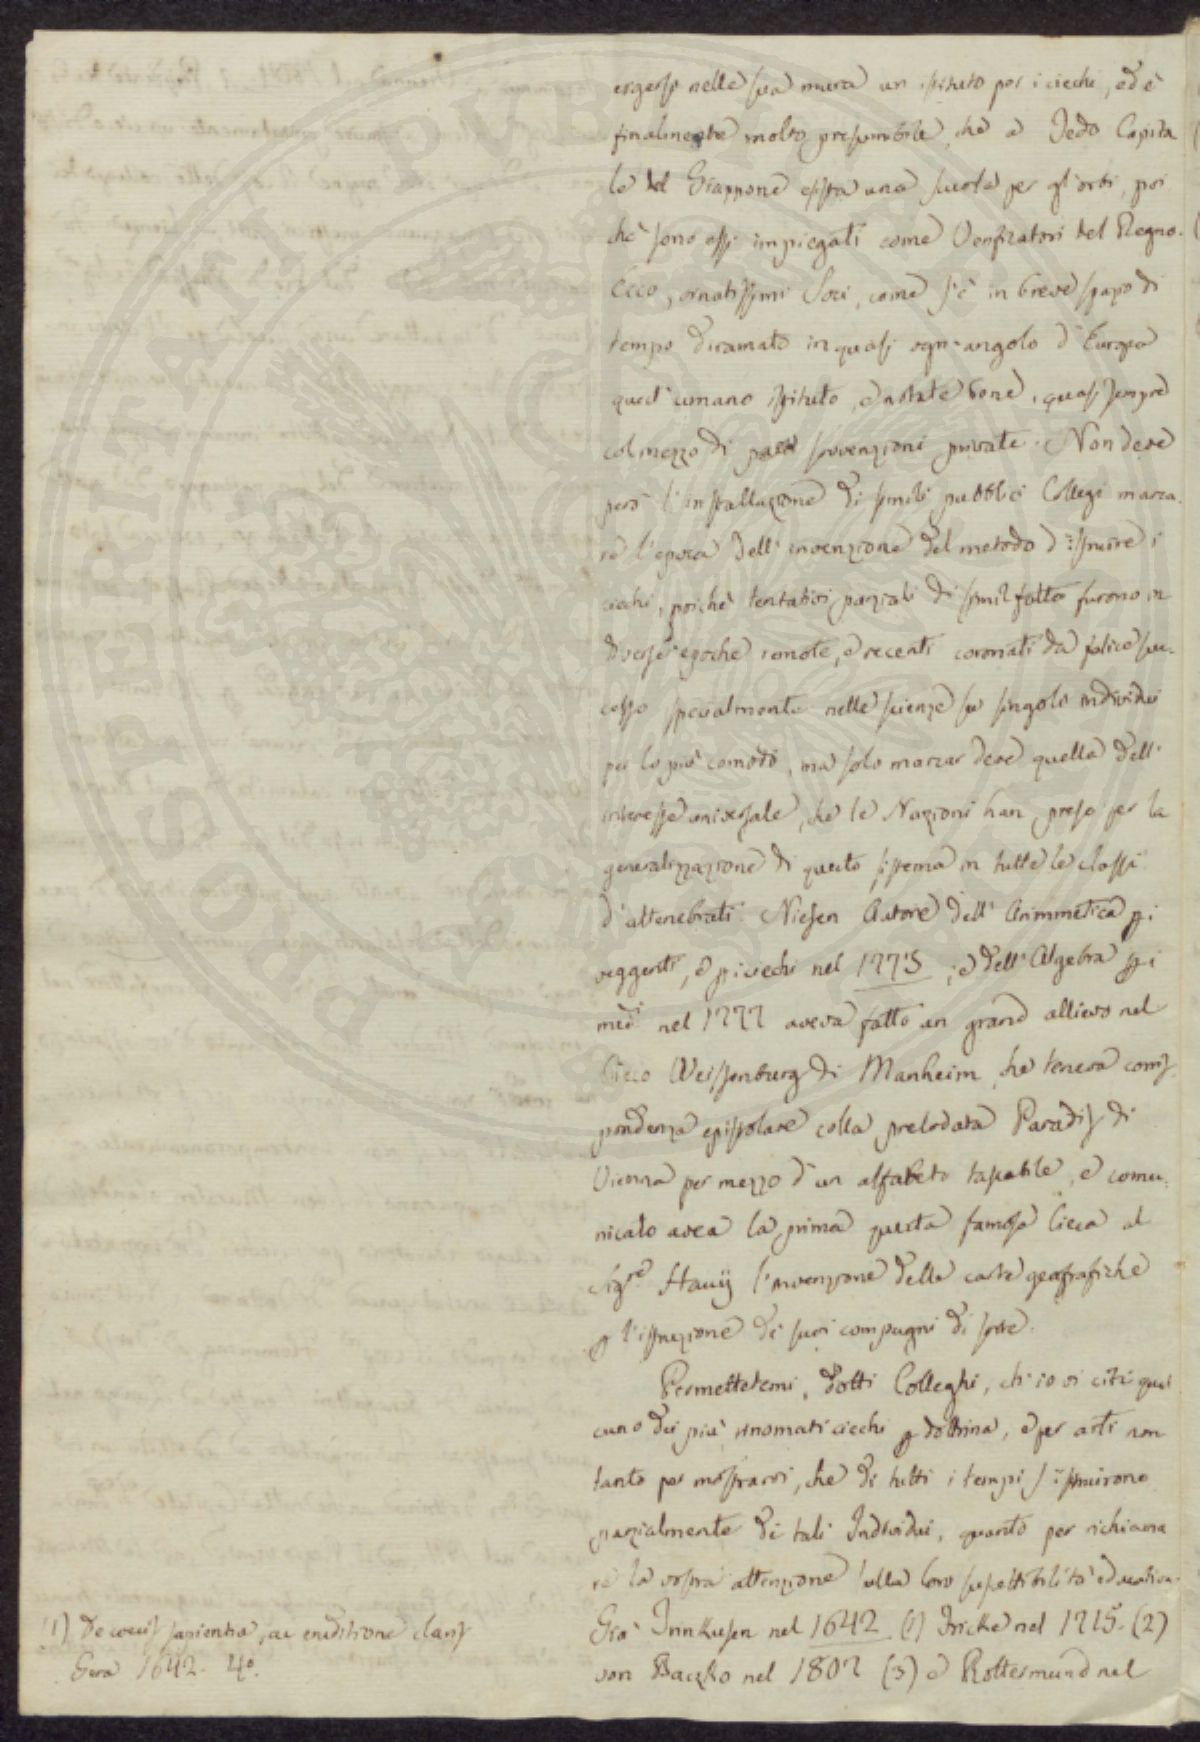 ergersi nelle sua mura un istituto per i ciechi, ed è
finalmente molto presumibile, che a Jedo Capita
le del Giappone esista una scuola per gl'orbi, poi
chè sono essi impiegati come Verfizatori del Regno.
Ecco, ornatissimi Soci, come s'è in breve spazo di
tempo diramato in quasi ogn-angolo d'Europa
quest'umano istituto, e notate bene, quasi sempre
col mezzo di sovvenzioni private. Non deve
però l'installazione di simili pubblici Collegi marca
re l'epoca dell'invenzione del metodo d'istruire i
ciechi, poichè tentativi parziali di simil fatto furono in
diverse epoche remote, e recenti coronati da felice suc-
cesso specialmente nelle scienze su singoli individui
per lo più comodi, ma solo marcar deve quella dell'
interesse universale, che le Nazioni han preso per la
generalizzazione di questo sistema in tutte le classi
d'attenebrati. Niesen Autore dell'Arimmetica p i
veggenti, e p i ciechi nel 1773, e dell'Algebra p i
med.i nel 1777 aveva fatto un grand allievo nel
Cieco Weissenburg di Manheim, che teneva corris
pondenza epistolare colla prelodata Paradis di
Vienna per mezzo d'un alfabeto tastabile, e comu-
nicato avea la prima questa famosa Cieca al
Sig.re Hauij l'invenzione delle carte geografiche
p l'istruzione de suoi compagni di sorte.
Permettetemi, dotti Colleghi, ch'io vi citi qual
cuno dei più rinomati ciechi p dottrina, e per arti non
tanto per mostrarvi, che di tutti i tempi s'istruirono
parzialmente di tali Individui, quanto per richiama
re la vostra attenzione sulla loro suscettibilità educativa.
Già Trinkusen nel 1642 (1) Tricke nel 1715. (2)
von Baczko nel 1807 (3) e Rottermund nel
(1) De coecis sapientia, ac eruditione claris
Gera 1642. 4°.